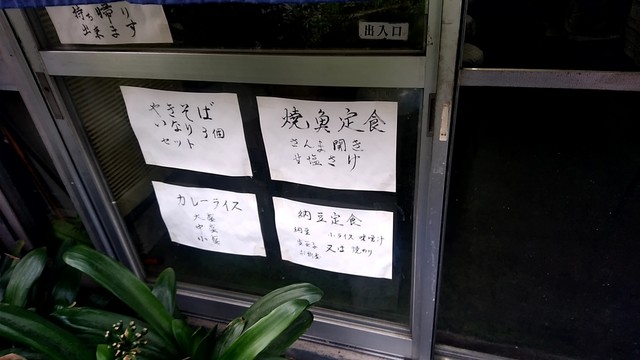 持ち帰り
出来ます
出入口
やきそば
いなり3個
セット
焼魚定食
さんま開き
甘塩さけ
カレーライス
大盛
中盛
小盛
納豆定食
納豆 小ライス 味噌汁
又は 焼のり
お新香